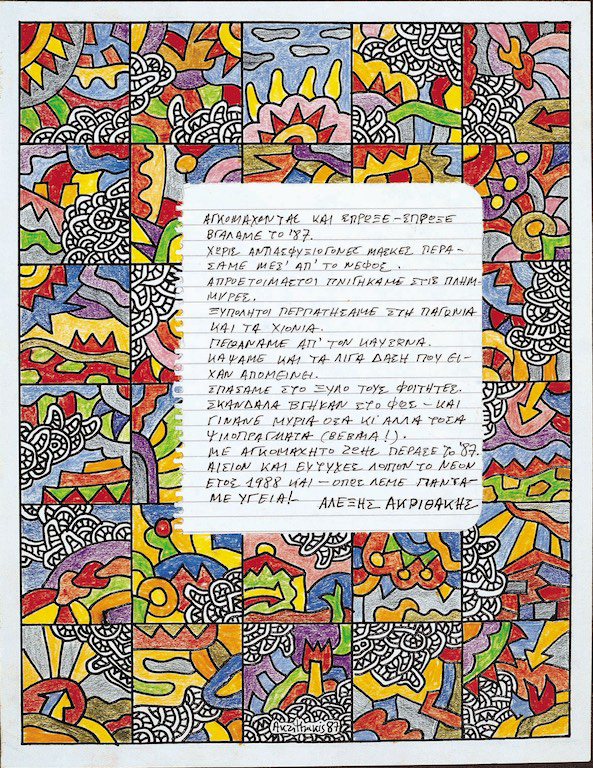 ΑΓΚΟΜΑΧΩΝΤΑΣ ΚΑΙ ΣΠΡΩΞΕ-ΣΠΡΩΞΕ
ΒΓΑΛΑΜΕ ΤΟ '87.
ΧΩΡΙΣ ΑΝΤΙΑΣΦΥΞΙΟΓΟΝΕΣ ΜΑΣΚΕΣ ΠΕΡΑ-
ΣΑΜΕ ΜΕΣ' ΑΠ' ΤΟ ΝΕΦΟΣ.
ΑΠΡΟΕΤΟΙΜΑΣΤΟΙ ΠΝΙΓΗΚΑΜΕ ΣΤΙΣ ΠΛΗΜ-
ΜΥΡΕΣ.
ΞΥΠΟΛΗΤΟΙ ΠΕΡΠΑΤΗΣΑΜΕ ΣΤΗ ΠΑΓΩΝΙΑ
ΚΑΙ ΤΑ ΧΙΟΝΙΑ.
ΠΕΘΑΝΑΜΕ ΑΠ' ΤΟΝ ΚΑΥΣΩΝΑ.
ΚΑΨΑΜΕ ΚΑΙ ΤΑ ΛΙΓΑ ΔΑΣΗ ΠΟΥ ΕΙ-
ΧΑΝ ΑΠΟΜΕΙΝΕΙ.
ΣΠΑΣΑΜΕ ΣΤΟ ΞΥΛΟ ΤΟΥΣ ΦΟΙΤΗΤΕΣ.
ΣΚΑΝΔΑΛΑ ΒΓΗΚΑΝ ΣΤΟ ΦΩΣ - ΚΑΙ
ΓΙΝΑΝΕ ΜΥΡΙΑ ΟΣΑ ΚΙ' ΑΛΛΑ ΤΟΣΑ
ΨΙΛΟΠΡΑΓΜΑΤΑ (ΒΕΒΑΙΑ!).
ΜΕ ΑΓΚΟΜΑΧΗΤΟ ΠΕΡΑΣΕ ΤΟ '87.
ΑΙΣΙΟΝ ΚΑΙ ΕΥΤΥΧΕΣ ΛΟΙΠΟΝ ΤΟ ΝΕΟΝ
ΕΤΟΣ 1988 ΚΑΙ - ΟΠΩΣ ΛΕΜΕ ΠΑΝΤΑ-
ΜΕ ΥΓΕΙΑ! ΑΛΕΞΗΣ ΑΚΡΙΘΑΚΗΣ
Akrithakis 87